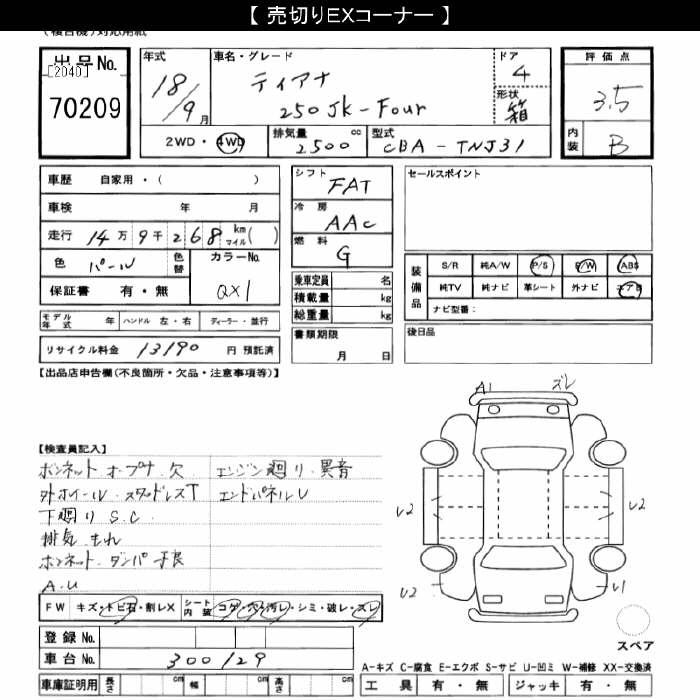 【 売切りEXコーナー 】
出品No.
[2040]
70209
年式
18/9月
車名・グレード
ティアナ
250JK-Four
ドア
4
形状
箱
評価点
3.5
内装
B
2WD・4WD
排気量
2500 cc
型式
CBA-TNJ31
車歴 自家用・( )
車検 年 月
走行 14万9千268 km マイル( )
色 パール
色替
カラーNo.
QX1
保証書 有・無
シフト
FAT
冷房
AAC
燃料
G
セールスポイント
乗車定員 名
積載量 kg
総重量 kg
装備品
S/R 純A/W P/S P/W ABS
純TV 純ナビ 革シート 外ナビ エアB
ナビ型番:
モデル年式 年 ハンドル 左・右 ディーラー・並行
リサイクル料金 13190 円 預託済
書類期限
月 日
後日品
【出品店申告欄(不良箇所・欠品・注意事項等)】
A1 ズレ
【検査員記入】
ボンネットオープナ欠 エンジン廻り異音
外ホイール.スタッドレスT エンドパネルU
下廻りS.C
排気もれ
ボンネットダンパ不良
A.U
U2
U2
U2
U1
FW キズ・トビ石・割レX シート内装 コゲ・穴・汚レ・シミ・破レ・スレ
登録No.
車台No. 300129
スペア
A-キズ C-腐食 E-エクボ S-サビ U-凹ミ W-補修 XX-交換済
車庫証明用 長さ cm 幅 cm 高さ cm
工具 有・無 ジャッキ 有・無